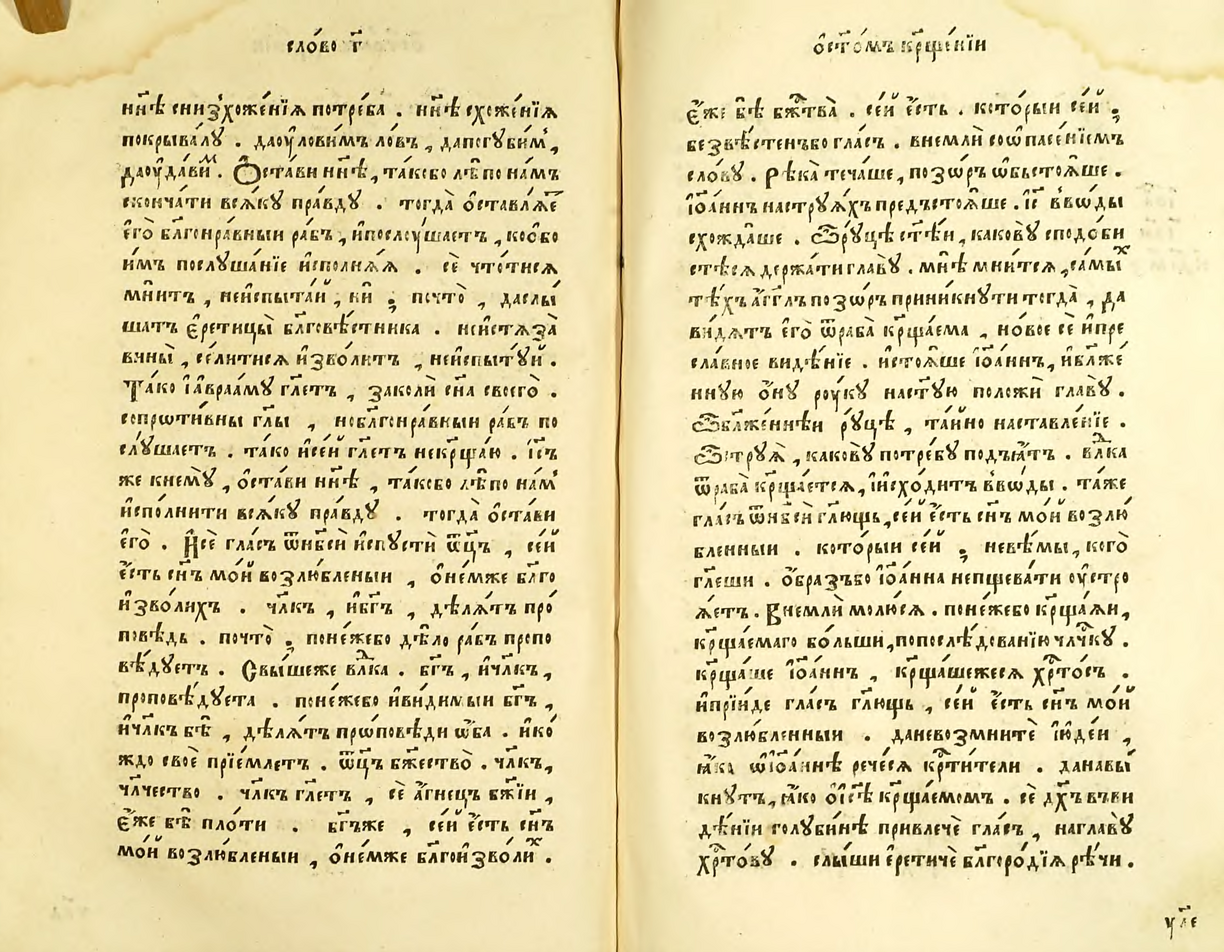 сло́во г҃
нн҃ѣ снизхоже́нїѧ потре́ба . нн҃ѣ схоже́нїѧ
покрыва́лꙋ . даоу҆ло́вимъ ло́въ , дапогꙋби́м ,
даоу҆да́вим . Ѻ҆ста́ви нн҃ѣ , та́кѡбо лѣ́по на́мъ
сконча́ти всѧ́кꙋ пра́вдꙋ . тогда̀ ѡ҆ставлѧ́е
є҆го̀ бл҃гонра́вныи ра́бъ , и҆послоу́шаетъ , ко́сѡбо
и́мъ послꙋша́нїе и҆сполнѧ́ѧ . сѐ что́тисѧ
мни́тъ , неи҆спыта́й , ни ; почто̀ , даслы́
шатъ є҆ретицы̀ бл҃говѣ́стника . неи҆стѧза́
вины̀ , се́литисѧ и҆зво́литъ , неи҆спытꙋ́й .
Та́ко і҆авраа́мꙋ гл҃етъ , заколѝ сн҃а своего̀ .
сопроти́вны гл҃ы , ноблгⷪ҇нра́вныи ра́бъ по
слꙋ́шаетъ . та́ко и҆се́й гл҃етъ некрщⷭ҇а́ю . і҆с҃ъ
же кнемꙋ̀ , ѡ҆ста́ви нн҃ѣ , та́кѡбо лѣ́по на́м
и҆спо́лнити всѧ́кꙋ пра́вдꙋ . тогда̀ ѡ҆ста́ви
є҆го̀ . И҆сѐ гла́съ ѿнб҃сѝ и҆спꙋстѝ ѻ҆ц҃ъ , се́й
є҆́сть сн҃ъ мо́й возлю́бленыи , ѡ҆не́мже бл҃го
и҆зво́лихъ . чл҃къ , и҆бг҃ъ , дѣлѧ́тъ про́
повѣдь . почто̀ ; поне́жебо дѣ́ло ра́бъ пропо
вѣ́дꙋетъ . Свы́шеже влⷣка . бг҃ъ , и҆чл҃къ ,
проповѣ́дꙋета . поне́жебо и҆ви́димыи бг҃ъ ,
и҆чл҃къ бѣ̀ , дѣлѧ́тъ про́повѣди ѻ҆́ба . и҆ко
ждо своѐ прїе́млетъ . ѻ҆ц҃ъ бж҃ество̀ . чл҃къ ,
чл҃чество . чл҃къ гл҃етъ , сѐ а҆́гнецъ бж҃їи ,
є҆́же бѣ̀ пло́ти . бг҃ъже , се́й є҆́сть сн҃ъ
мо́й возлю́бленыи , ѡ҆не́мже бл҃гои҆зво́лиⷯ .
ѡ҆ст҃о́мъ крщⷭ҇е́нїи
є҆́же бѣ̀ бжⷭ҇тва̀ . се́й є҆́сть . кото́рыи се́й ;
безвѣ́стенъбо гла́съ . внемлѝ соѡ҆пасе́нїемъ
сло́вꙋ . Рѣка̀ теча́ше , позо́ръ ѡ҆бьстоѧ́ше .
і҆ѡа́ннъ настрꙋѧ́хъ предъстоѧ́ше . і҆с҃ъ вво́ды
схожда́ше . Ѽрꙋцѣ̀ ст҃ѣ́и , какову̀ сподо́би
стⷭ҇ѣсѧ держа́ти главꙋ̀ . мнѣ̀ мни́тсѧ , самы́ⷯ
тѣ́хъ а҆́гг҃лъ позо́ръ прини́кнꙋти тогда̀ , да
ви́дѧтъ є҆го̀ ѿраба̀ крщⷭ҇а́ема , но́вое сѐ и҆пре
сла́вное ви́дѣнїе . и҆стоѧ́ше і҆ѡа́ннъ , и҆бл҃же́
ннꙋю ѻ҆́нꙋ роу́кꙋ наст҃ꙋю положѝ главꙋ̀ .
Ѽбл҃же́ннѣи рꙋ́цѣ , та́йно наставле́нїе .
Ѽстрꙋѧ̀ , каковꙋ̀ потре́бꙋ подъѧ́тъ . влⷣка
ѿраба̀ крщⷭ҇а́етсѧ , і҆и҆схо́дитъ вво́ды . та́же
гла́съ ѿнб҃сѝ гл҃ющь , се́й є҆́сть сн҃ъ мо́й возлю́
бленныи . кото́рыи се́й ; невѣ́мы , кого̀
гл҃еши . ѻ҆́бразъбо і҆ѡа́нна непщева́ти оу҆стро
ѧ́етъ . Внемлѝ молю́сѧ . поне́жебо крща́ѧи ,
крщⷭ҇а́емаго бо́льши , попослѣ́дованїю чл҃чкꙋ .
крщⷭ҇а́ше і҆ѡа́ннъ , крщⷭ҇а́шежесѧ хрⷭ҇то́съ .
и҆прїи́де гла́съ гл҃ющь , се́й є҆́сть сн҃ъ мо́й
возлю́бленныи . даневозмнитѐ і҆ꙋде́и ,
ꙗ҆́кѡ ѡ҆і҆ѡа́ннѣ рече́сѧ крⷭ҇ти́тели . данавы́
кнꙋтъ , ꙗ҆́кѡ ѡ҆і҆с҃ѣ крщⷭ҇а́емомъ . сѐ дх҃ъ въви
дѣ́нїи голꙋби́нѣ привлечѐ гла́съ , наглавꙋ̀
хрⷭ҇то́вꙋ . слы́ши є҆ретичѐ бл҃горо́дїѧ рѣ́чи .
ул҃е